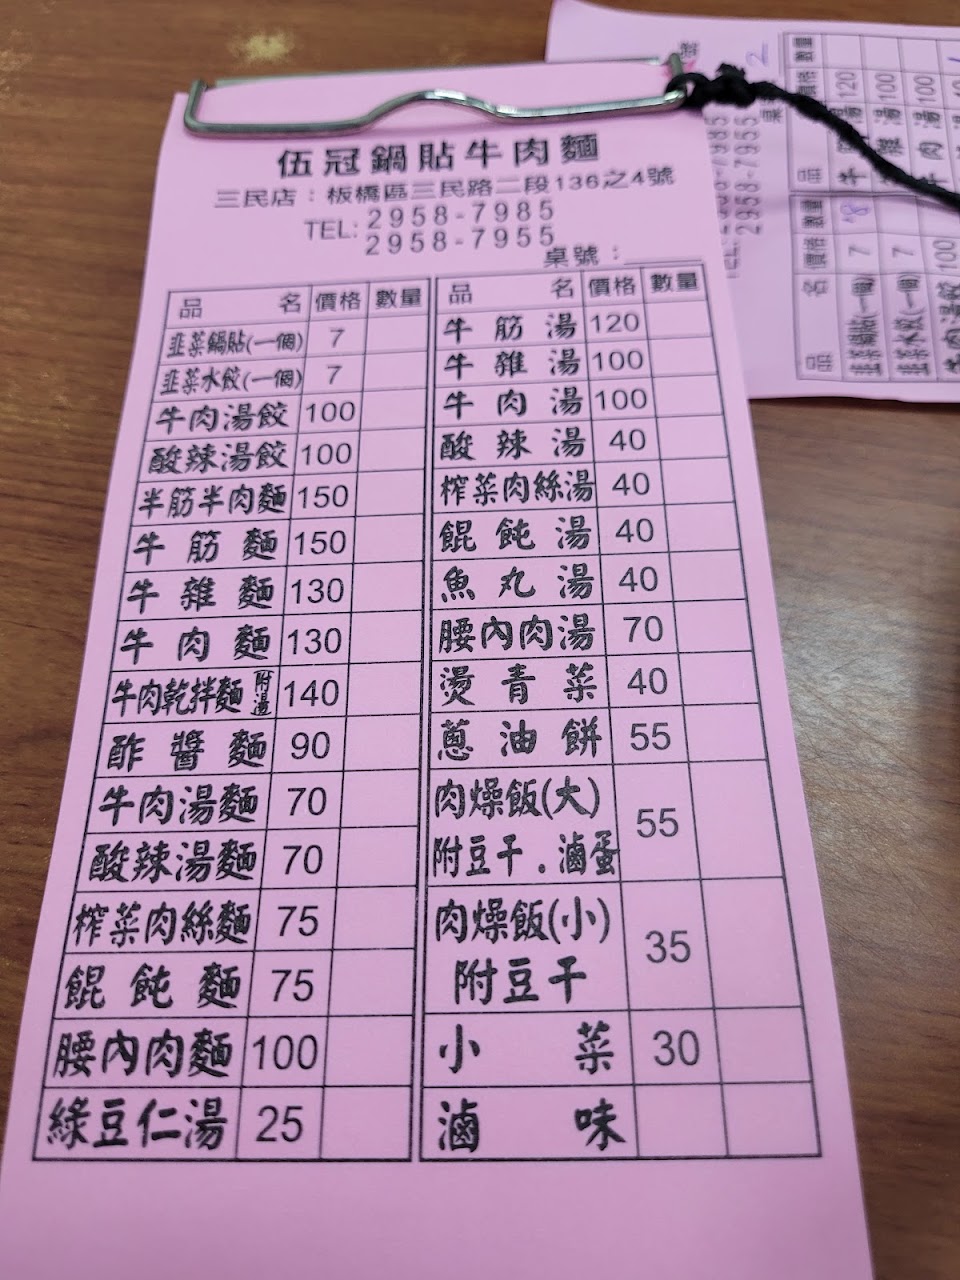 伍冠鍋貼牛肉麵
三民店：板橋區三民路二段136之4號
TEL: 2958-7985
2958-7955
桌號：
品名 價格 數量
韭菜鍋貼(一個) 7
韭菜水餃(一個) 7
牛肉湯餃 100
酸辣湯餃 100
半筋半肉麵 150
牛筋麵 150
牛雜麵 130
牛肉麵 130
牛肉乾拌麵 附湯 140
酢醬麵 90
牛肉湯麵 70
酸辣湯麵 70
榨菜肉絲麵 75
餛飩麵 75
腰內肉麵 100
綠豆仁湯 25
品名 價格 數量
牛筋湯 120
牛雜湯 100
牛肉湯 100
酸辣湯 40
榨菜肉絲湯 40
餛飩湯 40
魚丸湯 40
腰內肉湯 70
燙青菜 40
蔥油餅 55
肉燥飯(大)
附豆干．滷蛋 55
肉燥飯(小)
附豆干 35
小菜 30
滷味
2958-7955
品名 價格 數量
韭菜鍋貼(一個) 7 18
韭菜水餃(一個) 7
100
品 價格 數量
牛 湯 120
牛雜湯 100
牛肉湯 100